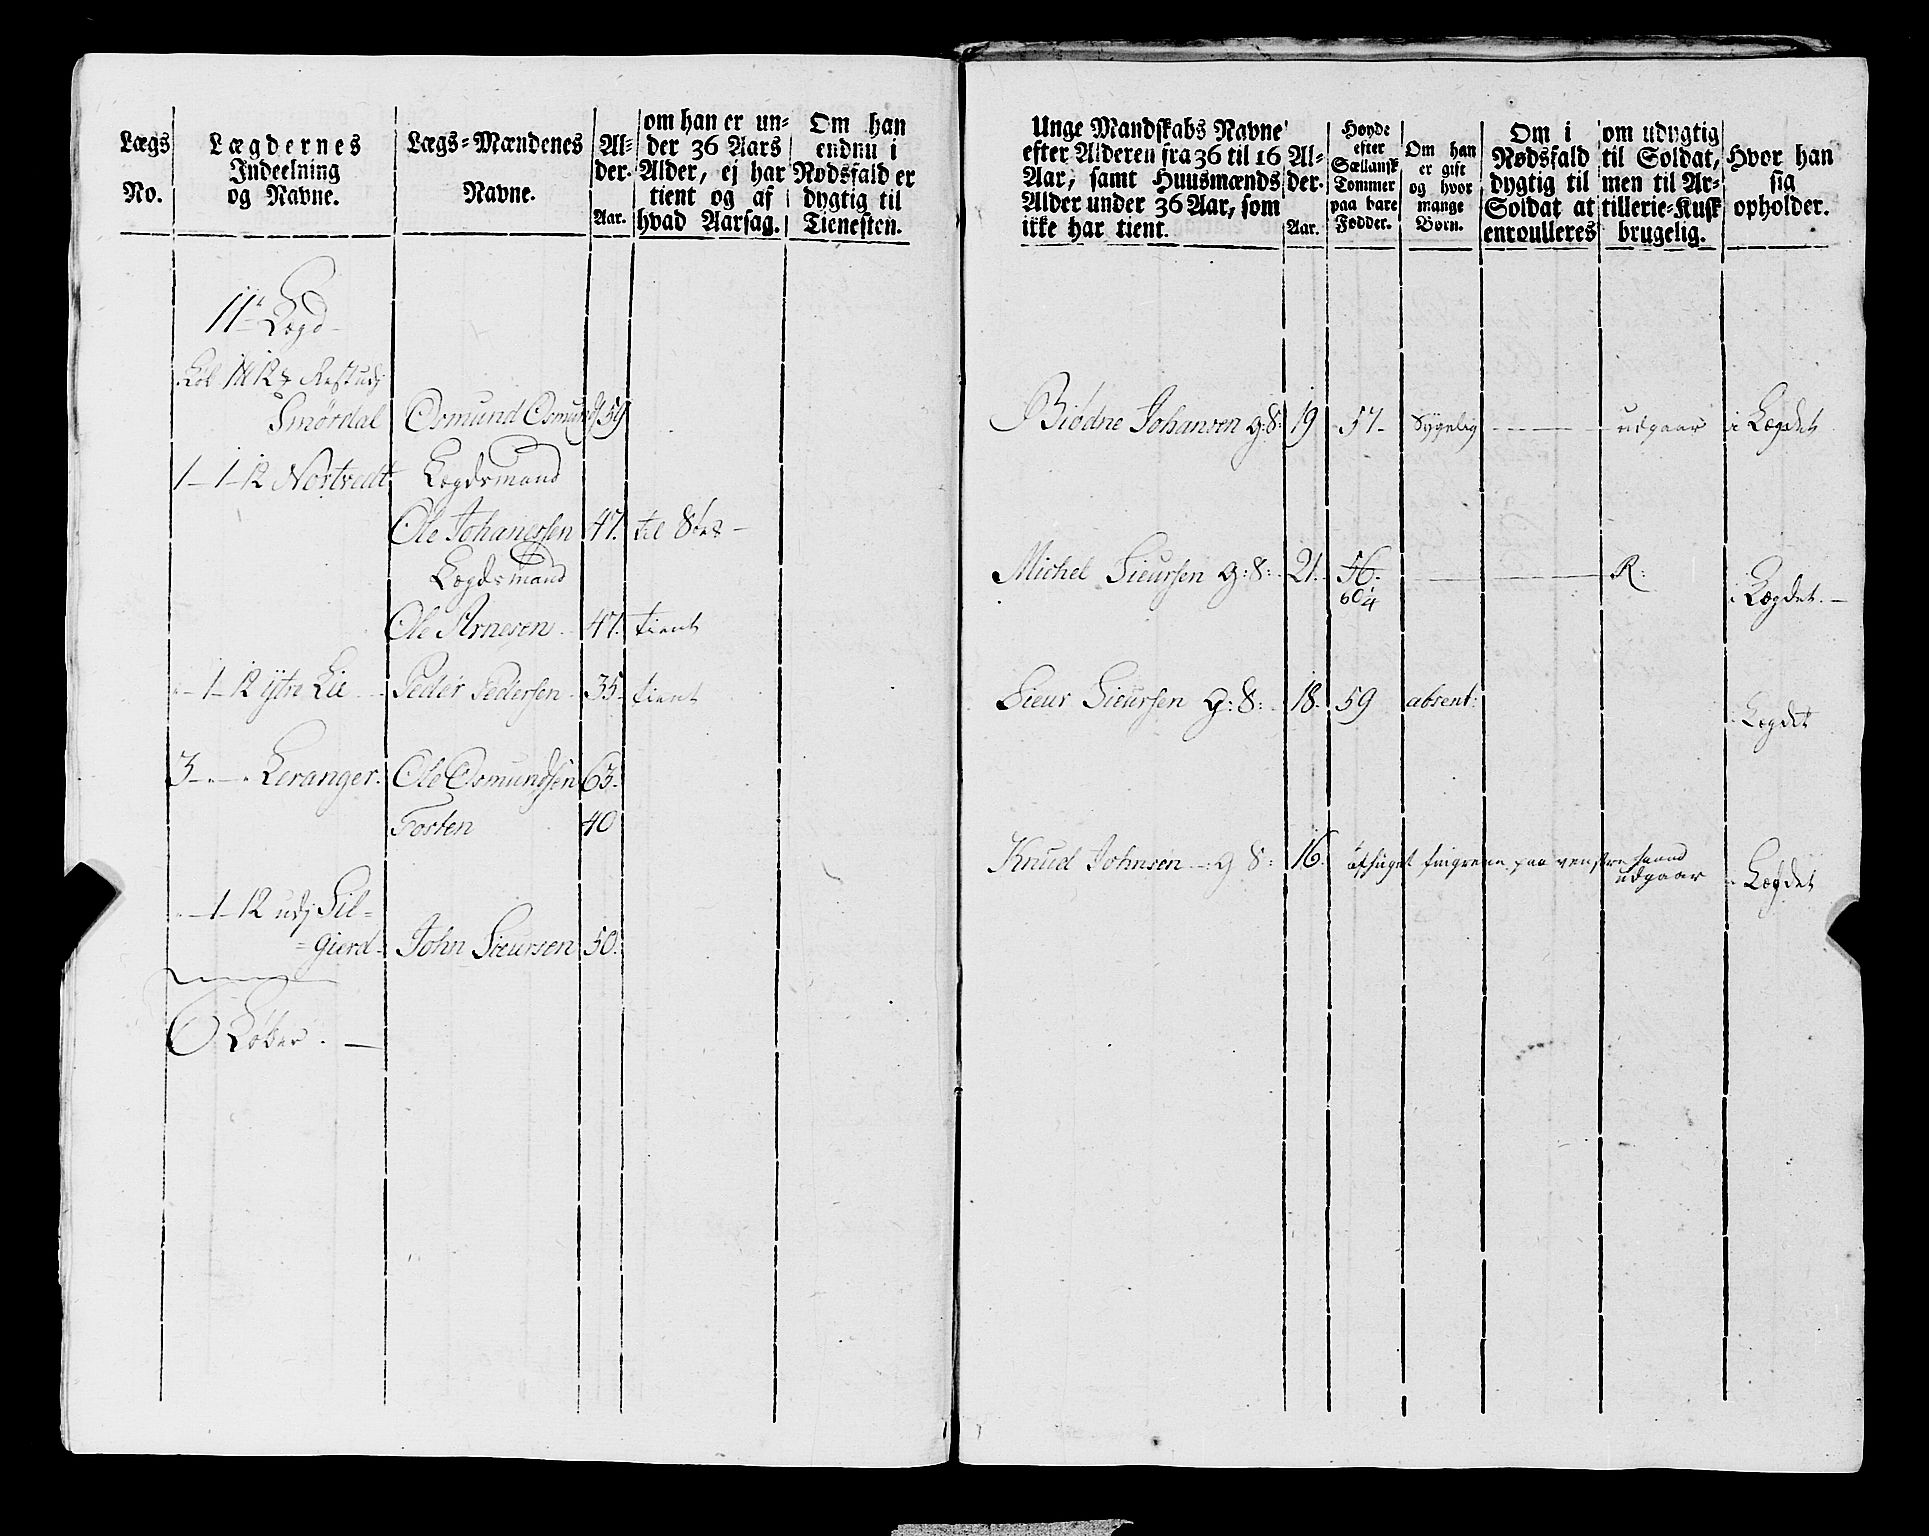 Lægs
No.
Lægdernes
Indeelning
og Navne.
Lægs-Mændenes
Navne.
Al-
der.
Aar.
om han er un-
der 36 Aars
Alder, ej har
tient og af
hvad Aarsag.
Om han
endnu i
Nødsfald er
dygtig til
Tienesten.
11te Lægd
Løb
Smørdal Osmund Osmunds 59
1 - 1 - 12 Nortvedt Lægdsmand
Ole Johanessen 47. til Søes -
Lægdsmand
Ole Arnesen 47. tient
- 1 - 12 ytre Lie Peder Pedersen 35 tient
3 - " - " Leranger. Ole Osmundsen 63.
Tosten 40
" - 1 - 12 udj Sil-
=gierd John Sieursen 50.
6 Løber. -
Unge Mandskabs Navne
efter Alderen fra 36 til 16
Aar, samt Huusmænds
Alder under 36 Aar, som
ikke har tient.
Al-
der.
Aar.
Høyde
efter
Siællansk
Tommer
paa bare
Fødder.
Om han
er gift
og hvor
mange
Børn.
Om i
Nødsfald
dygtig til
Soldat at
enroulleres
om udygtig
til Soldat,
men til Ar-
tillerie-Kusk
brugelig.
Hvor han
sig
opholder.
Biødne Johansen g: S: 19 57 Sygelig udgaar i Lægdet
Michel Sieursen g: S: 21. 56. R: i Lægdet. -
60 1/4
Sieur Sieursen g: S: 18. 59 absent: Lægdet
Knud Johnsen g S: 16. fingrene paa venstre haand
udgaar Lægdet